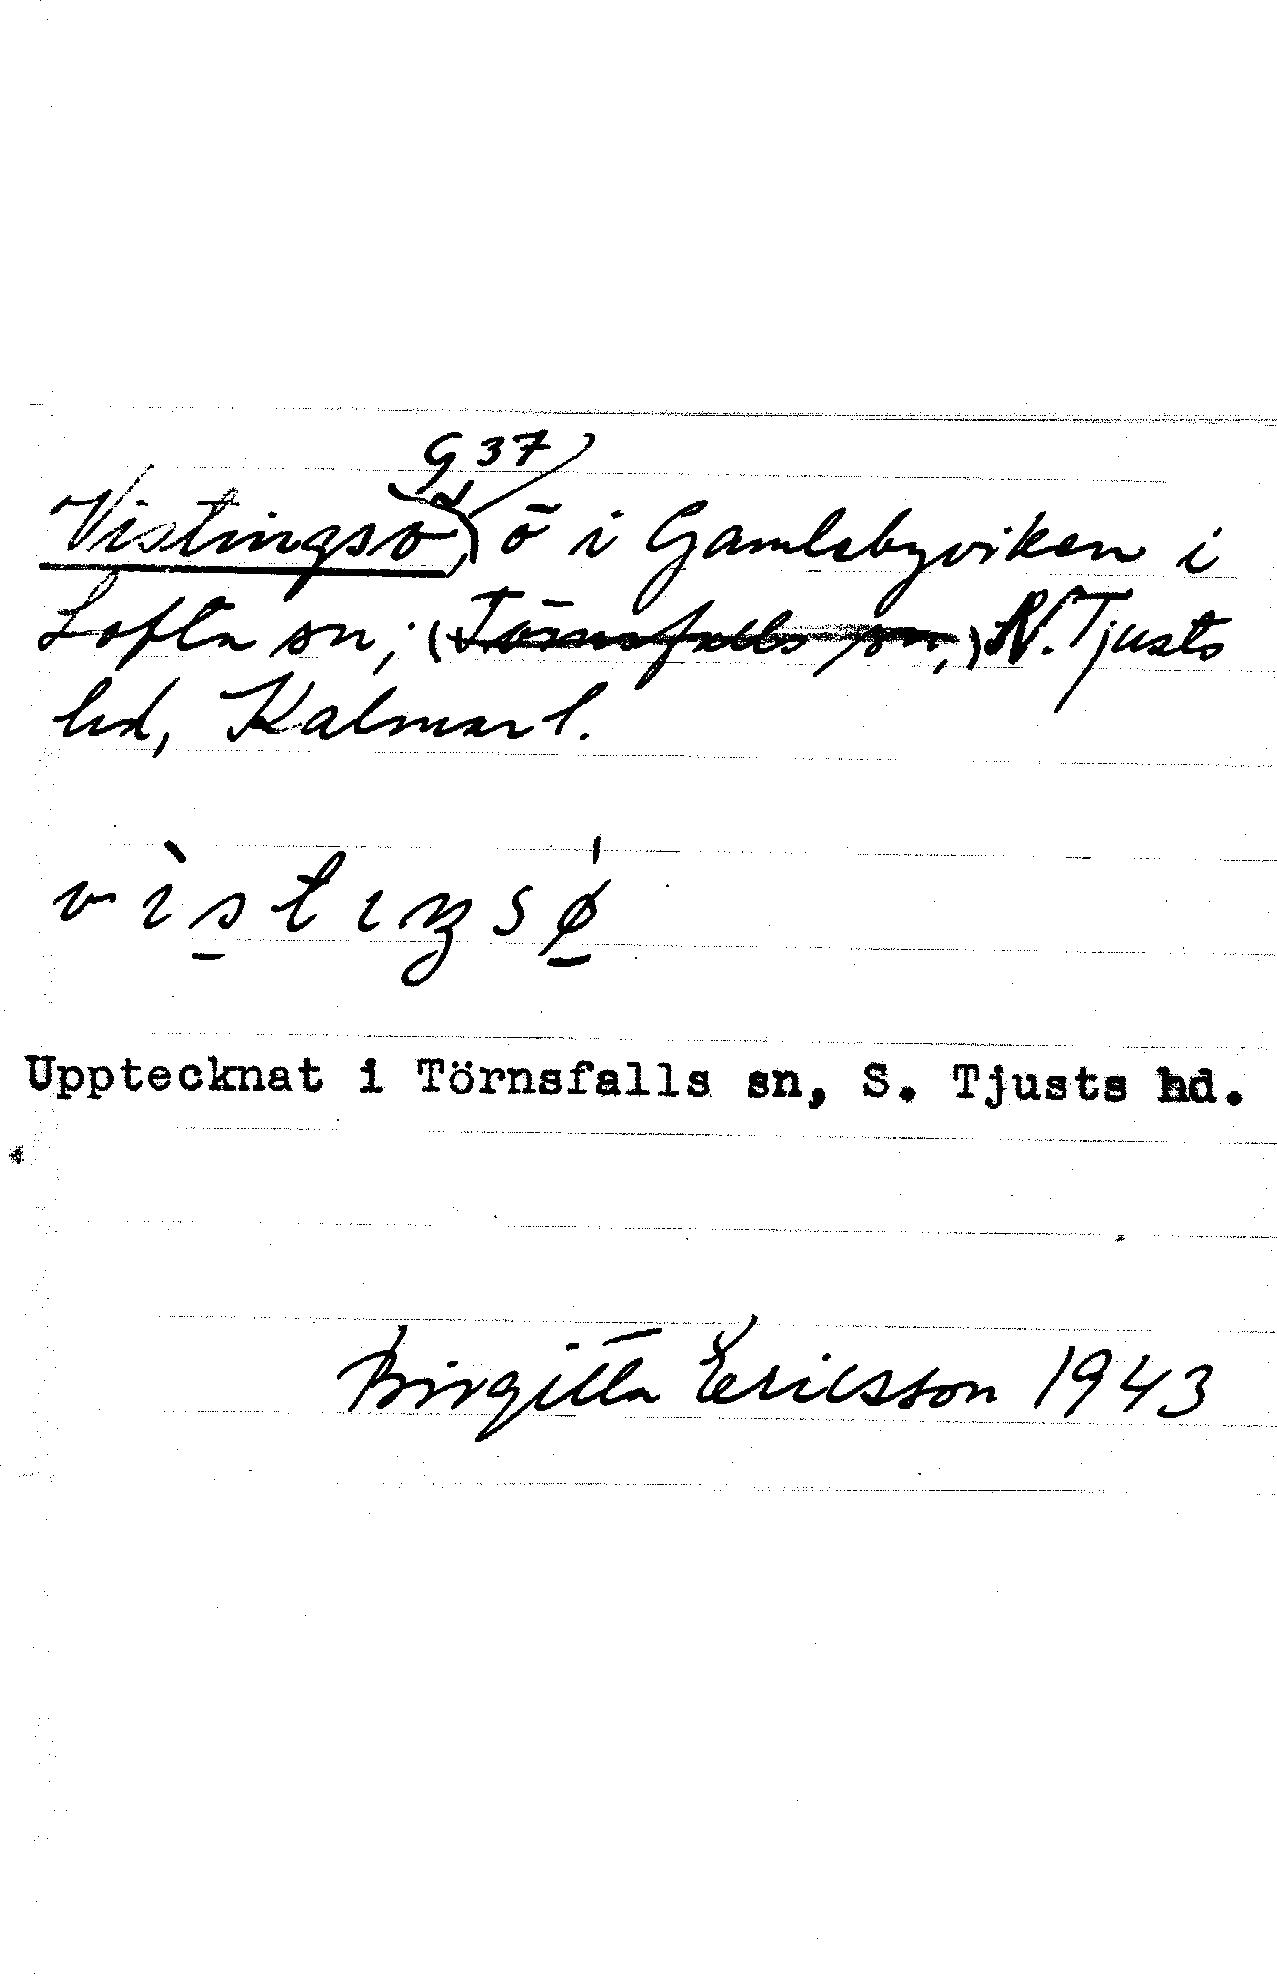 G 37
Vistingsö, ö i Gamlebyviken i
Lofta sn; (Törnsfalls sn,) N. Tjusts
hd, Kalmar l.
vìstɩŋsǿ
Upptecknat i Törnsfalls sn, S. Tjusts hd.
Birgitta Ericsson 1943